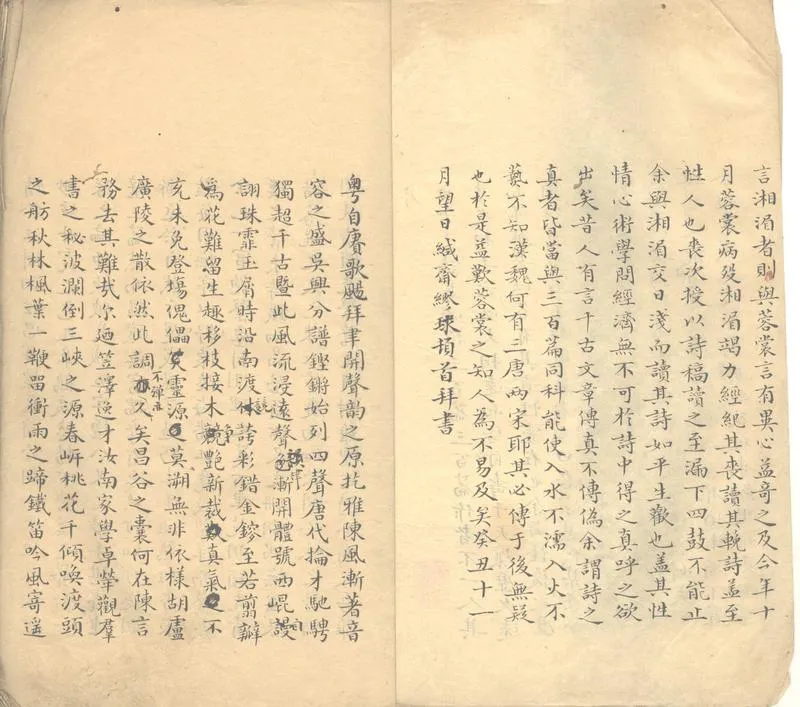 言湘湄者則與蓉裳言有異心益奇之及今年十
月蓉裳病歿湘湄竭力經紀其喪讀其輓詩益至
性人也喪次授以詩稿讀之至漏下四鼓不能止
余與湘湄交日淺而讀其詩如平生歡也蓋其性
情心術學問經濟無不可於詩中得之真呼之欲
出矣昔人有言千古文章傳真不傳偽余謂詩之
真者皆當與三百篇同科能使入水不濡入火不
爇不知漢魏何有三唐兩宋耶其必傳于後無疑
也於是益歎蓉裳之知人為不易及矣癸丑十一
月望日緘齋繆球頓首拜書
粤自賡歌颺拜聿開聲韵之原扢雅陳風漸著音
容之盛吳興分譜鏗鏘始列四聲唐代掄才馳騁
獨超千古曁此風流浸遠聲律漸開體號西崑謾
詡珠霏玉屑時沿南渡誇彩錯金鎔至若剪辦
為花難留生趣移枝接木競艷新裁真氣不
充未免登塲傀儡靈源莫溯無非依樣胡盧
廣陵之散依然此調不彈久矣昌谷之囊何在陳言
務去其難哉尔廼笠澤逸才汝南家學卓犖觀羣
書之秘波瀾倒三峽之源春岍桃花千傾喚渡頭
之舫秋林楓葉一鞭畱衝雨之蹄鐵笛吟風寄遥